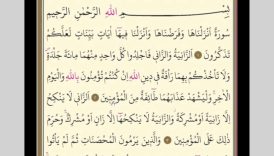 بِسْمِ اللهِ الرَّحْمٰنِ الرَّحِيمِ
سُورَةٌ اَنْزَلْنَاهَا وَفَرَضْنَاهَا وَاَنْزَلْنَا فِيهَا اٰيَاتٍ بَيِّنَاتٍ لَعَلَّكُمْ
تَذَكَّرُونَ اَلزَّانِيَةُ وَالزَّانِي فَاجْلِدُوا كُلَّ وَاحِدٍ مِنْهُمَا مِائَةَ جَلْدَةٍ
وَلَا تَأْخُذْكُمْ بِهِمَا رَأْفَةٌ فِي دِينِ اللهِ اِنْ كُنْتُمْ تُؤْمِنُونَ بِاللهِ وَالْيَوْمِ
الْاٰخِرِ وَلْيَشْهَدْ عَذَابَهُمَا طَائِفَةٌ مِنَ الْمُؤْمِنِينَ اَلزَّانِي لَا يَنْكِحُ
اِلَّا زَانِيَةً اَوْ مُشْرِكَةً وَالزَّانِيَةُ لَا يَنْكِحُهَا اِلَّا زَانٍ اَوْ مُشْرِكٌ وَحُرِّمَ
ذٰلِكَ عَلَى الْمُؤْمِنِينَ وَالَّذِينَ يَرْمُونَ الْمُحْصَنَاتِ ثُمَّ لَمْ يَأْتُوا